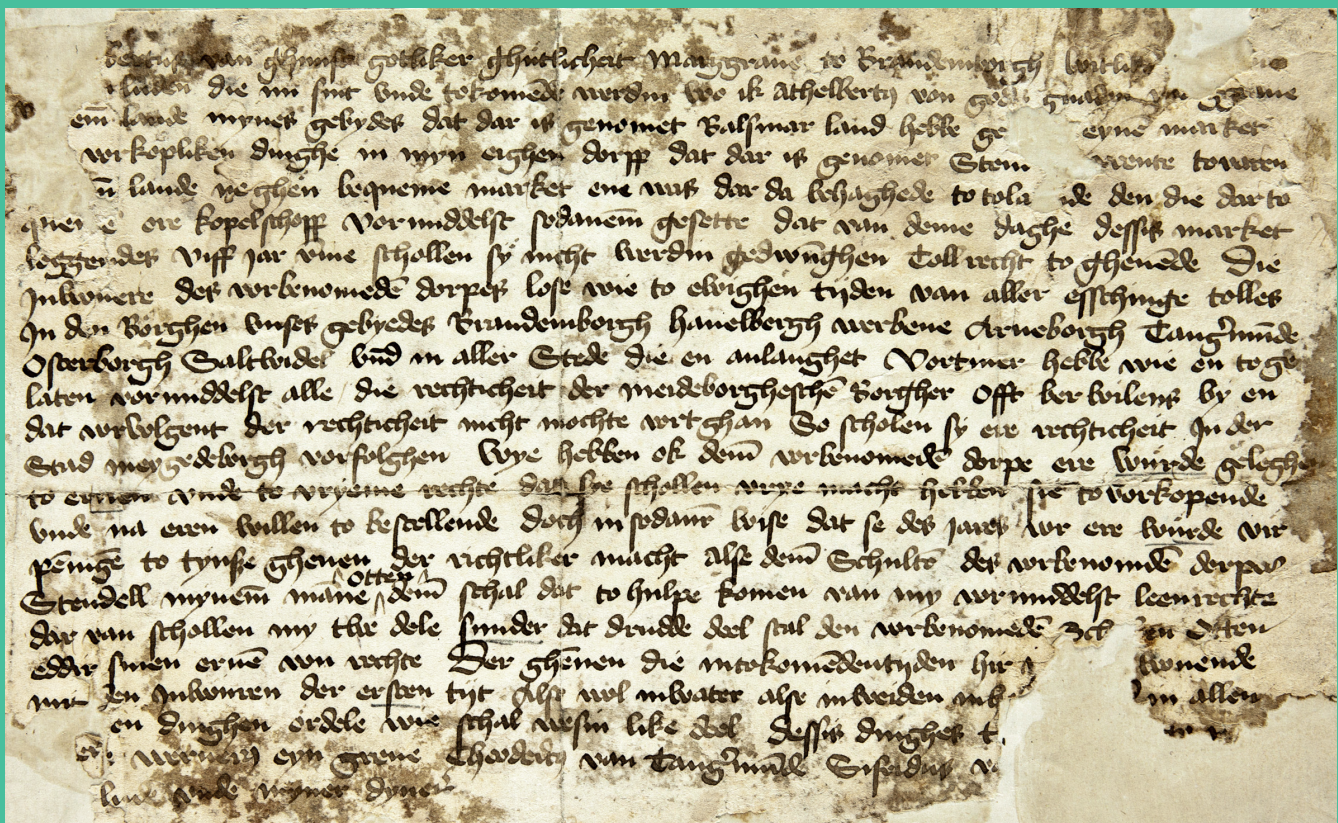 van ghunst gotliker ghutlicheit Marggraue to Brandemborgh witlik
luden die nu sint vnde tokomēde werdin wo ik Athelbertꝰ von gnaden
lande mynes gebydes dat dar is genomet Balsmar land hebbe ge eynē market
vorkopliken dinghe in myn eighen dorpp dat dar is genomet Sten wente towaren
lande neghen bequeme market ene was dar da behaghede to tola den die dar to
ore kopelschopp vormiddelst sodanem gesette dat van deme daghe dessis market
leggendes viff jar vme schollen sy nicht werdin gedwūghen Tollrecht to gheuēde Die
Inwonere des vorbenomedē dorpes lose wie to ewighen tyden van aller esschinge tolles
In den Borghen vnses gebyedes Brandemborgh hauelbergh werbene Arneborgh Tangmūde
Osterborgh Saltwidel vnd in aller Stede die en anlanghet Vortmer hebbe wie en to ge
laten vormiddelst alle die rechticheit der meideborgheschē Borgher Offt berwilens by en
dat vorvolgent der rechticheit nicht mochte vortghan So scholen sy ere rechticheit In der
Stad meygedeborgh vorfolghen Wye hebben ok dem vorbenomedē dorpe ere wurde gelegh
to eruen vnde to vryeme rechte dat sye schollen vrye macht hebben sie to vorkopende
vnde na eren willen to bestellende doch in sodanr wise dat se des jares vor ere wurde vir
pēnige to tynse gheuen der richtliker macht Alse dem Schultē des vorbenomdē dorpes
Stendell mynem māne Otten dem schal dat to hulpe komen van my vormiddelst leenrechte
dar van schollen my the dele sunder dat drudde deel scal den vorbenomedē Otten
eddir sinen eruē von rechte Der ghēnen die in tokomēdentyden hir wonende
mit en Inwonren der ersten tyt Alse wol in water alse in weiden in allen
en dinghen ordele wie schal wesin like deel dessis dinghes
wernerꝰ eyn greue Theoderiꝰ van Tangmūde Sifridus
lude vnde myner dyner